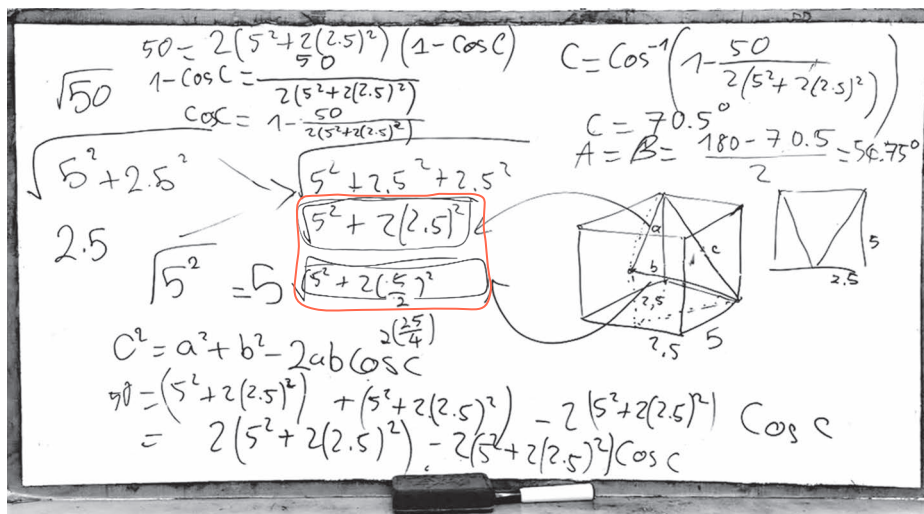 50 = 2(5²+2(2.5)²)(1-cosC)
1-cosC = 50/2(5²+2(2.5)²)
cosC = 1-50/2(5²+2(2.5)²)
C = Cos⁻¹(1-50/2(5²+2(2.5)²))
C = 70.5°
A = B = 180-70.5/2 = 54.75°
√50
√5²+2.5²
2.5
√5² = 5
√5²+2.5²+2.5²
√5²+2(2.5)²
√5²+2(5/2)²
2(25/4)
a
b
c
2,5
2,5
5
5
2.5
C² = a²+b²-2abcosc
50 = (5²+2(2.5)²) + (5²+2(2.5)²) - 2(5²+2(2.5)²) Cos c
= 2(5²+2(2.5)²) - 2(5²+2(2.5)²)Cosc